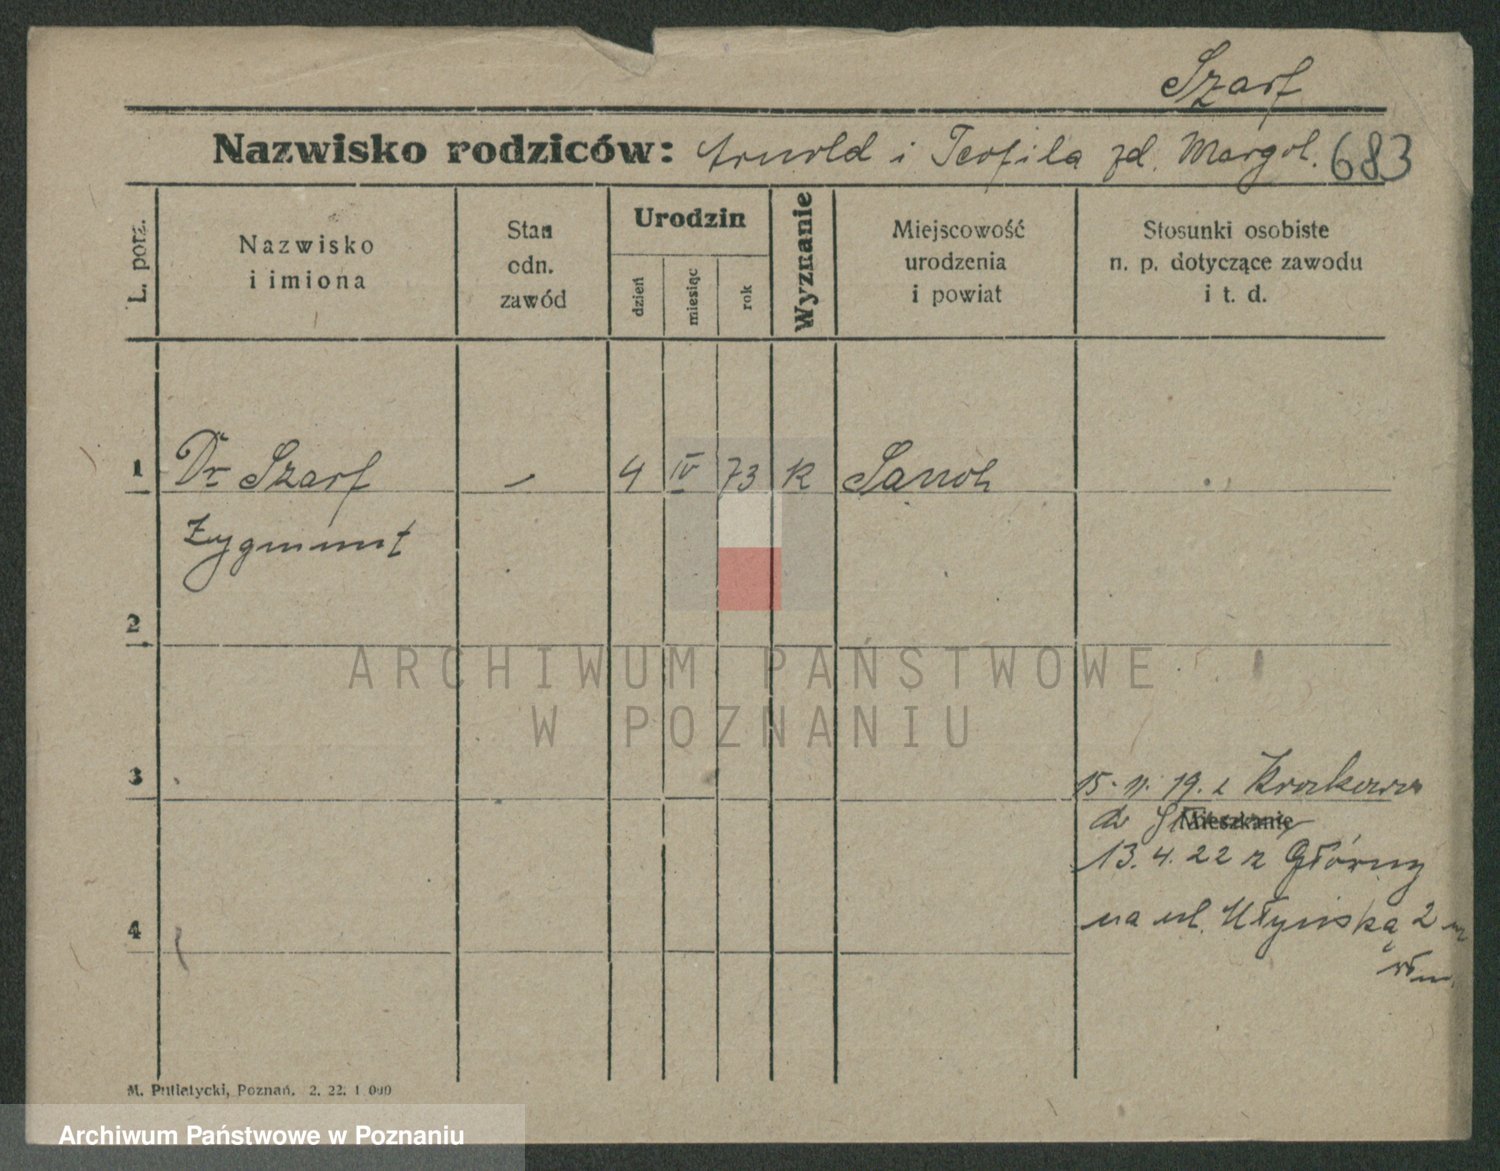 Szarf
Nazwisko rodziców: Arnold i Teofila zd. Margol. 683
L. porz.
Nazwisko
i imiona
Stan
odn.
zawód
Urodzin
dzień
miesiąc
rok
Wyznanie
Miejscowość
urodzenia
i powiat
Stosunki osobiste
n. p. dotyczące zawodu
i t. d.
1 Dr Szarf - 4 IV 73 K Sanok
Zygmunt
2
3
15. 11. 19. z Krakowa
do
Mieszkanie
13. 4. 22 z Główny
na ul. Młyńską 2
4
M. Putiatycki, Poznań. 2. 22. 1 000
ARCHIWUM PAŃSTWOWE
W POZNANIU
Archiwum Państwowe w Poznaniu